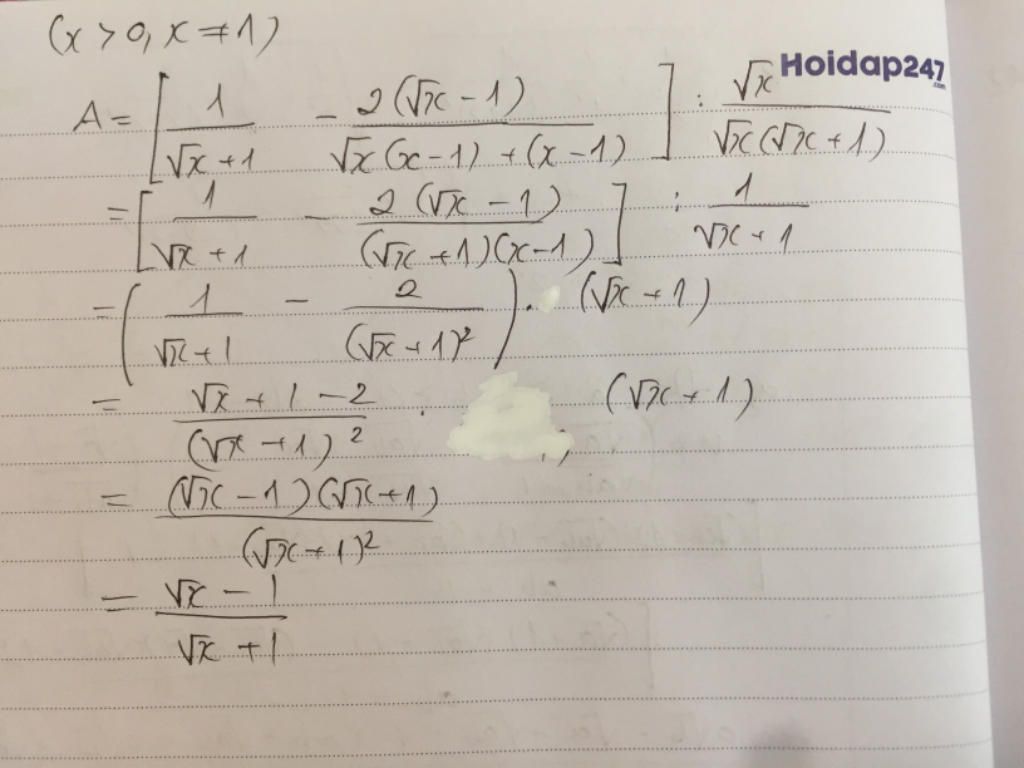 (x > 0, x ≠ 1)
Hoidap247.com
A = [ 1/(√x + 1) - 2(√x - 1)/(√x(x - 1) + (x - 1)) ] : √x/(√x(√x + 1))
= [ 1/(√x + 1) - 2(√x - 1)/((√x + 1)(x - 1)) ] : 1/(√x + 1)
= ( 1/(√x + 1) - 2/(√x + 1)² ) . (√x + 1)
= (√x + 1 - 2)/(√x + 1)² . (√x + 1)
= (√x - 1)(√x + 1)/(√x + 1)²
= (√x - 1)/(√x + 1)